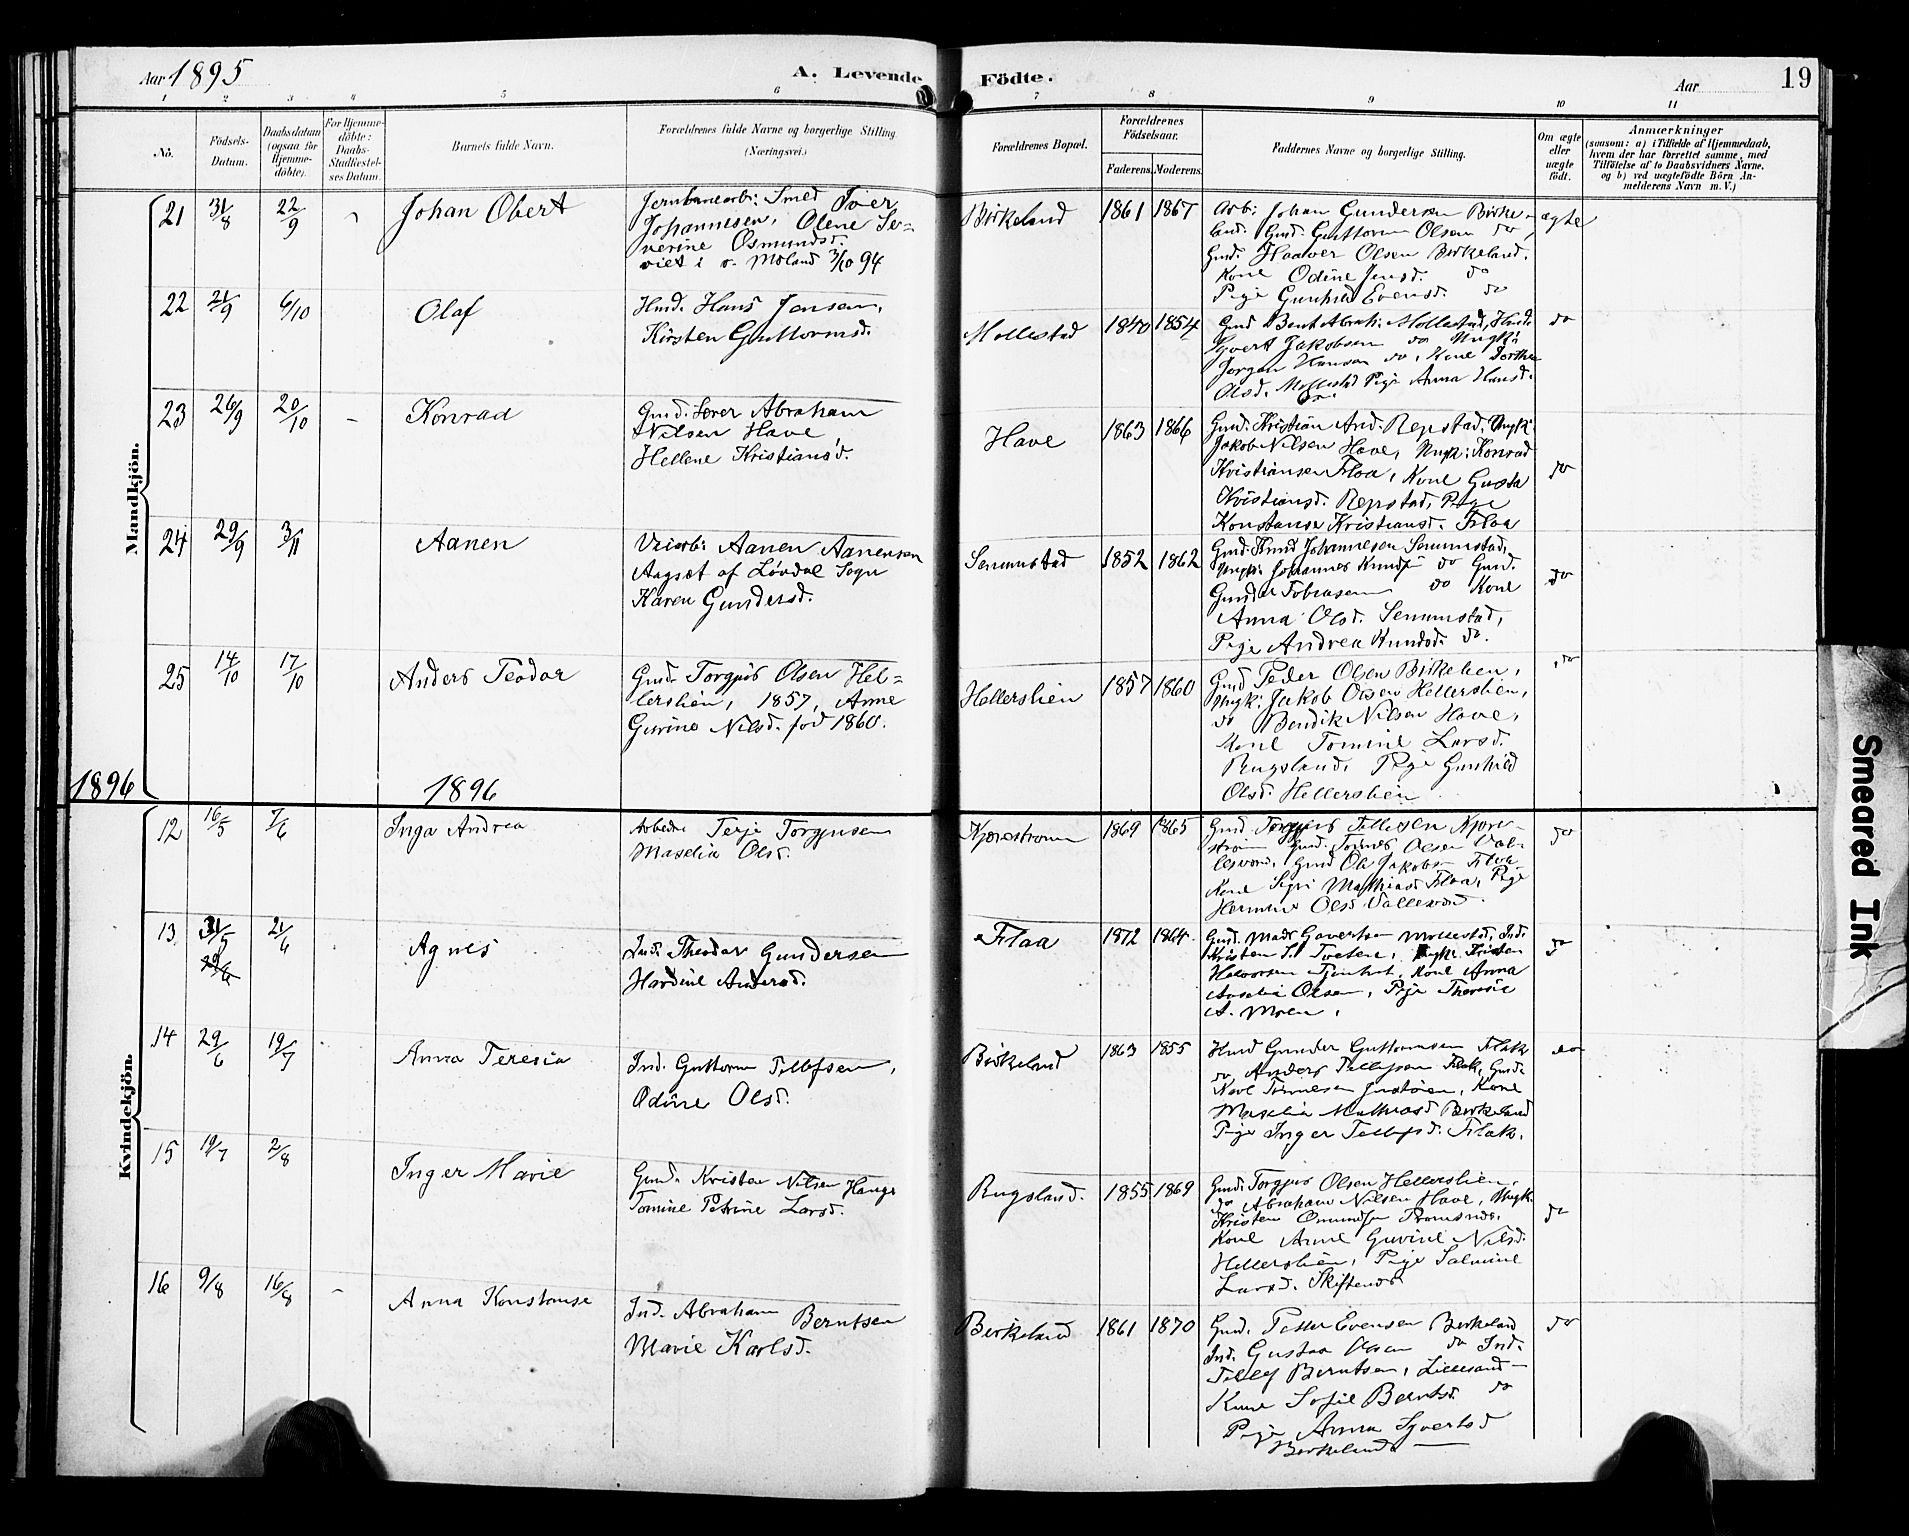 Aar 1895
A. Levende Födte.
Aar
19
1 2 3 4 5 6 7 8 9 10 11
No.
Födsels-Datum.
Daabsdatum (ogsaa for Hjemmedöbte).
For Hjemmedöbte: Daabs-Stadfæstelses Datum.
Barnets fulde Navn.
Forældrenes fulde Navne og borgerlige Stilling (Næringsvei.)
Forældrenes Bopæl.
Forældrenes Födselsaar.
Faderens. Moderens.
Faddernes Navne og borgerlige Stilling.
Om ægte eller uægte födt.
Anmærkninger
(saasom: a) i Tilfælde af Hjemmedaab, hvem der har forrettet samme, med Tilföielse af to Daabsvidners Navne. og b) ved uægtefödte Börn Anmelderens Navn m. V.)
Mandkjön.
21 31/8 22/9 Johan Obert
Jernbanearb: Smed Iver
Johannesen, Olene Se=
verine Osmundsd.
viet i v. Moland 3/10 94
Birkeland 1861 1867
Arb: Johan Gundersen Birke-
land. Gmd. Guttorm Olsen do,
Gmd. Haaver Olsen Birkeland.
Kone Odine Jensd. do
Pige Gunhild Evensd. do
ægte
22 21/9 6/10 Olaf
Hmd. Hans Jensen,
Kirsten Guttormsd.
Mollestad 1840 1854
Gmd Bent Abrah. Mollestad, Hmd.
Syvert Jakobsen do Ungk:
Jørgen Hansen do, Kone Dorthea
Olsd. Mollestad Pige Anna Hansd.
do
23 26/9 20/10 - Konrad
Gmd. Lærer Abraham
Nilsen Have
Hellene Kristiansd.
Have 1863 1866
Gmd. Kristian And. Repstad, Ungk:
Jakob Nilsen Have, Ungk: Konrad
Kristiansen Flaa, Kone Gusta
Kristiansd. Repstad, Pige
Konstanse Kristiansd. Flaa
do
24 29/9 3/11 Aanen
Veiarb: Aanen Aanensen
Aagsæt af Løvdal Sogn
Karen Gundersd.
Senumstad 1852 1862
Gmd. Knud Johannesen Senumstad,
Ungk: Johannes Knuds: do Gmd.
Gunder Tobiasen do Kone
Anna Olsd. Senumstad,
Pige Andrea Knudsd. do.
do
25 14/10 17/10 Anders Teodor
Gmd. Torgjus Olsen Hel=
lerslien, 1857, Anne
Gurine Nilsd. fød 1860.
Hellerslien 1857 1860
Gmd Peder Olsen Birkelien,
Ungk: Jakob Olsen Hellerslien,
do Bendik Nilsen Have,
Kone Tomine Larsd.
Rugsland, Pige Gunhild
Olsd. Hellerslien
do
1896 1896
Kvindekjön.
12 16/5 7/6 Inga Andrea
Arbeider Terje Torgjusen
Maselia Olsd.
Kjørestrøm 1869 1865
Gmd. Torgjus Tellefsen Kjøre-
strøm Gmd. Tomas Olsen Val-
lesverd, Gmd Ole Jakobsen Flaa
Kone Sigri Mathiasd Flaa, Pige
Hermine Olsd Vallesverd.
do
13 31/5 21/6 Agnes
Ind. Theodor Gundersen
Hardine Andersd.
Flaa 1872 1864
Gmd. Mads Govertsen Mollestad, Ind.
Kristen S. Tveten, Ungk. Kristen
Halvorsen, Kone Anna
Olsen, Pige Theresie
A. Moen,
do
14 29/6 19/7 Anna Teresia
Ind. Guttorm Tellefsen,
Odine Olsd.
Birkeland 1863 1855
Hmd Gunder Guttormsen Flak
do Anders Tellefsen Flak, Gmd.
Kone
Maselia Mathiasd Birkeland
Pige Inger Tellefsd. Flak.
do
15 19/7 2/8 Inger Marie
Gmd. Kristen Nilsen Hauge
Tomine Petrine Larsd.
Rugsland. 1855 1869
Gmd. Torgjus Olsen Hellerslien,
do Abraham Nilsen Have, Ungk.
Kristen
Kone Anne Gurine Nilsd.
Hellerslien, Pige Salmine
Larsd. Skiftenes
do
16 9/8 16/8 - Anna Konstanse
Ind. Abraham Berntsen
Marie Karlsd.
Birkeland 1861 1870
Gmd. Peder Evensen Birkeland
Ind. Gustav Olsen do Ind.
Tellef Berntsen, Lillesand
Kone Sofie Berntsd. do
Pige Anna Syvertsd
Birkeland
do
Smeared Ink